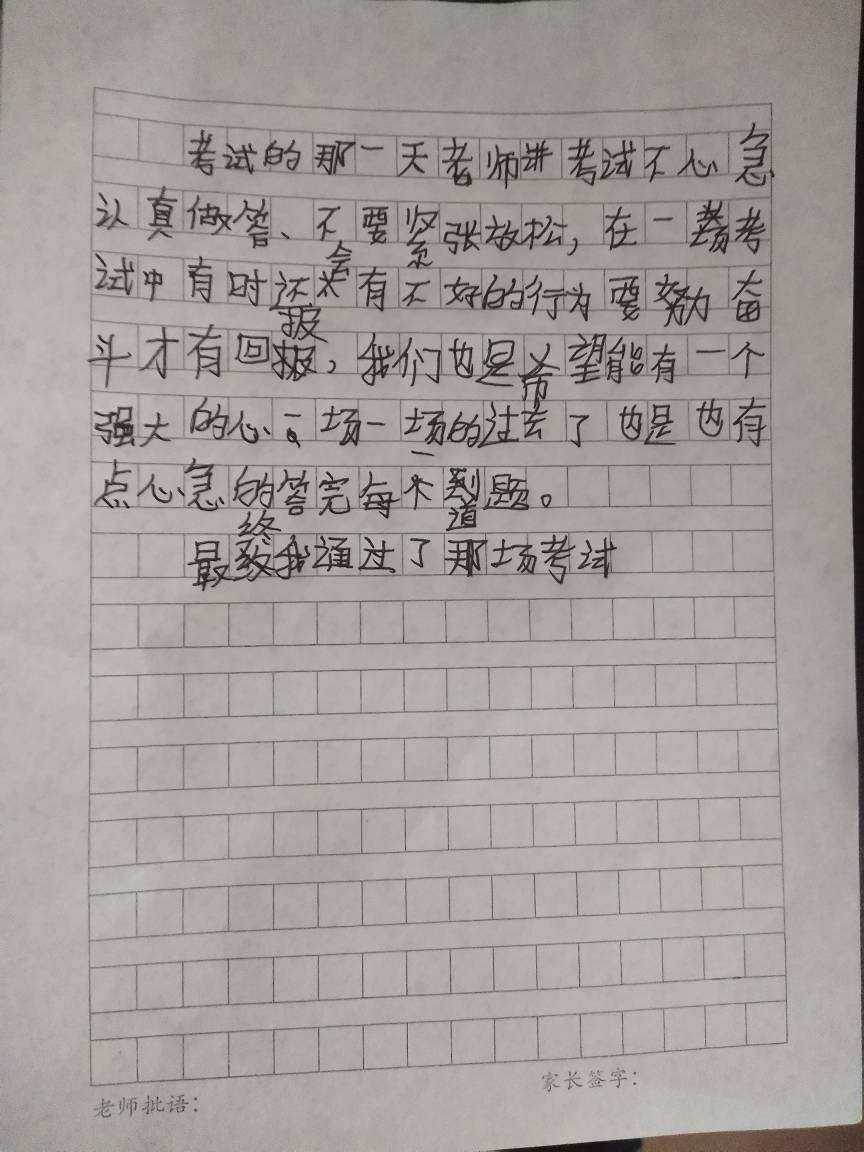 考试的那一天老师讲考试不心急
认真做答、不要紧张放松，在一场考
试中有时还会有不好的行为要努力奋
斗才有回报，我们也是希望能有一个
强大的心。一场一场的过去了也是也有
点心急的答完每一道题。
最终我通过了那场考试
老师批语：
家长签字：